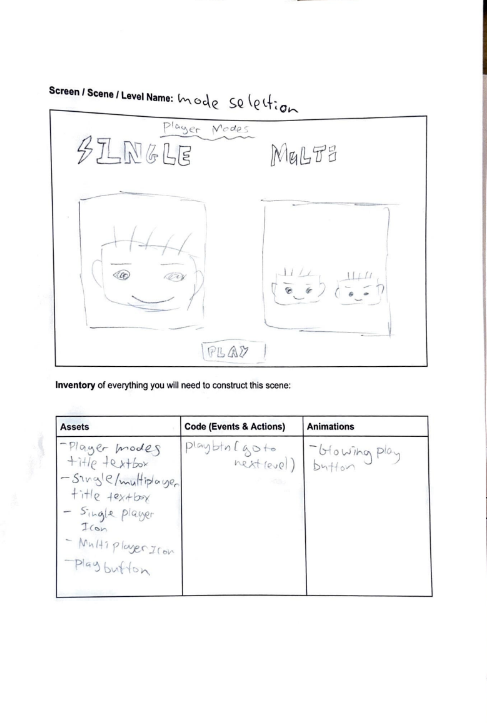 Screen / Scene / Level Name: mode selection
Player Modes
SINGLE
MULTI
PLAY
Inventory of everything you will need to construct this scene:
Assets
Code (Events & Actions)
Animations
-Player modes
title textbox
-Single/multiplayer
title textbox
- Single player
Icon
- Multi player Icon
-Play button
playbtn(go to
next level)
-Glowing play
button